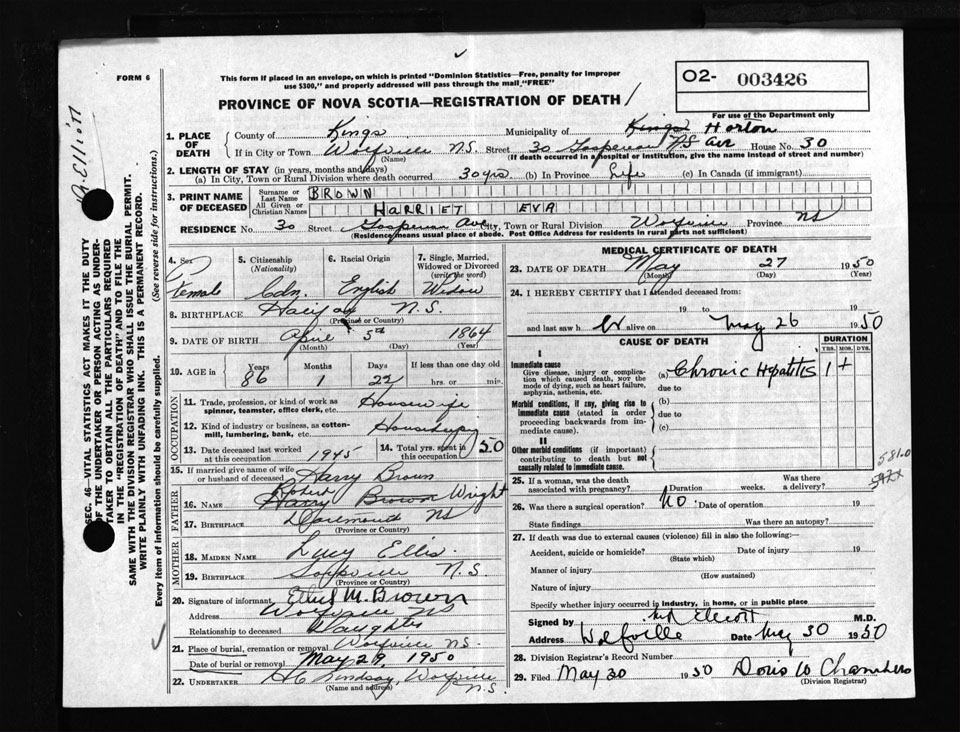 FORM 6
This form if placed in an envelope, on which is printed "Dominion Statistics—Free, penalty for improper
use $300," and properly addressed will pass through the mail "FREE"
O2- 003426
PROVINCE OF NOVA SCOTIA—REGISTRATION OF DEATH
For use of the Department only
1. PLACE OF DEATH
County of Kings Municipality of Kings Horton
If in City or Town Wolfville N.S. Street 30 Gaspereau Ave House No. 30
(Name) (If death occurred in a hospital or institution, give the name instead of street and number)
2. LENGTH OF STAY (in years, months and days)
(a) In City, Town or Rural Division where death occurred 30 yrs. (b) In Province Life (c) In Canada (if immigrant)
3. PRINT NAME OF DECEASED
Surname or Last Name BROWN
All Given or Christian Names HARRIET EVA
RESIDENCE No. 30 Street Gaspereau Ave City, Town or Rural Division Wolfville Province NS
(Residence means usual place of abode. Post Office Address for residents in rural parts not sufficient)
4. Sex Female
5. Citizenship (Nationality) Cdn.
6. Racial Origin English
7. Single, Married, Widowed or Divorced (write the word) Widow
8. BIRTHPLACE Halifax N.S.
(Province or Country)
9. DATE OF BIRTH April 5th 1864
(Month) (Day) (Year)
10. AGE in Years 86 Months 1 Days 22 If less than one day old hrs. or min.
OCCUPATION
11. Trade, profession, or kind of work as spinner, teamster, office clerk, etc. Housewife
12. Kind of industry or business, as cotton-mill, lumbering, bank, etc. Housekeeping
13. Date deceased last worked at this occupation 1945
14. Total yrs. spent in this occupation 50
15. If married give name of wife or husband of deceased Harry Brown
FATHER
16. NAME Robert Harry Brown Wright
17. BIRTHPLACE NS
(Province or Country)
MOTHER
18. MAIDEN NAME Lucy Ellis.
19. BIRTHPLACE N.S.
(Province or Country)
20. Signature of informant Ethel M. Brown
Address Wolfville NS
Relationship to deceased Daughter
21. Place of burial, cremation or removal Wolfville N.S.
Date of burial or removal May 29, 1950
22. UNDERTAKER Lindsay, Wolfville N.S.
(Name and address)
MEDICAL CERTIFICATE OF DEATH
23. DATE OF DEATH May 27 1950
(Month) (Day) (Year)
24. I HEREBY CERTIFY that I attended deceased from:
19 to 19
and last saw her alive on May 26 1950
CAUSE OF DEATH
DURATION
YRS. MOS. DYS.
I
Immediate cause
Give disease, injury or complication which caused death, not the mode of dying, such as heart failure, asphyxia, asthenia, etc.
(a) Chronic Hepatitis 1+
due to
Morbid conditions, if any, giving rise to immediate cause (stated in order proceeding backwards from immediate cause).
(b)
due to
(c)
II
Other morbid conditions (if important) contributing to death but not causally related to immediate cause.
581.0
25. If a woman, was the death associated with pregnancy? Duration weeks. Was there a delivery?
26. Was there a surgical operation? No. Date of operation 19
State findings Was there an autopsy?
27. If death was due to external causes (violence) fill in also the following:—
Accident, suicide or homicide? Date of injury 19
(State which)
Manner of injury
(How sustained)
Nature of injury
Specify whether injury occurred in industry, in home, or in public place
Signed by Elliott M.D.
Address Wolfville Date May 30 1950
28. Division Registrar's Record Number
29. Filed May 30 1950 Doris W Chambers
(Division Registrar)
Elliott
SEC. 46—VITAL STATISTICS ACT MAKES IT THE DUTY
OF THE UNDERTAKER OR PERSON ACTING AS UNDER-
TAKER TO OBTAIN ALL THE PARTICULARS REQUIRED
IN THE "REGISTRATION OF DEATH" AND TO FILE THE
SAME WITH THE DIVISION REGISTRAR WHO SHALL ISSUE THE BURIAL PERMIT.
WRITE PLAINLY WITH UNFADING INK. THIS IS A PERMANENT RECORD.
Every item of information should be carefully supplied. (See reverse side for instructions.)